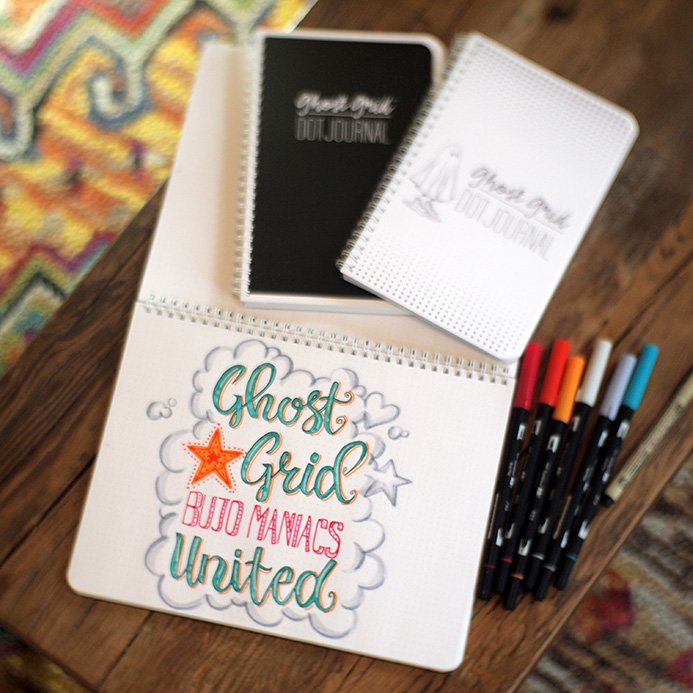 Ghost Grid
DOT JOURNAL
Ghost Grid
DOT JOURNAL
Ghost
Grid
BUJO MANIACS
United